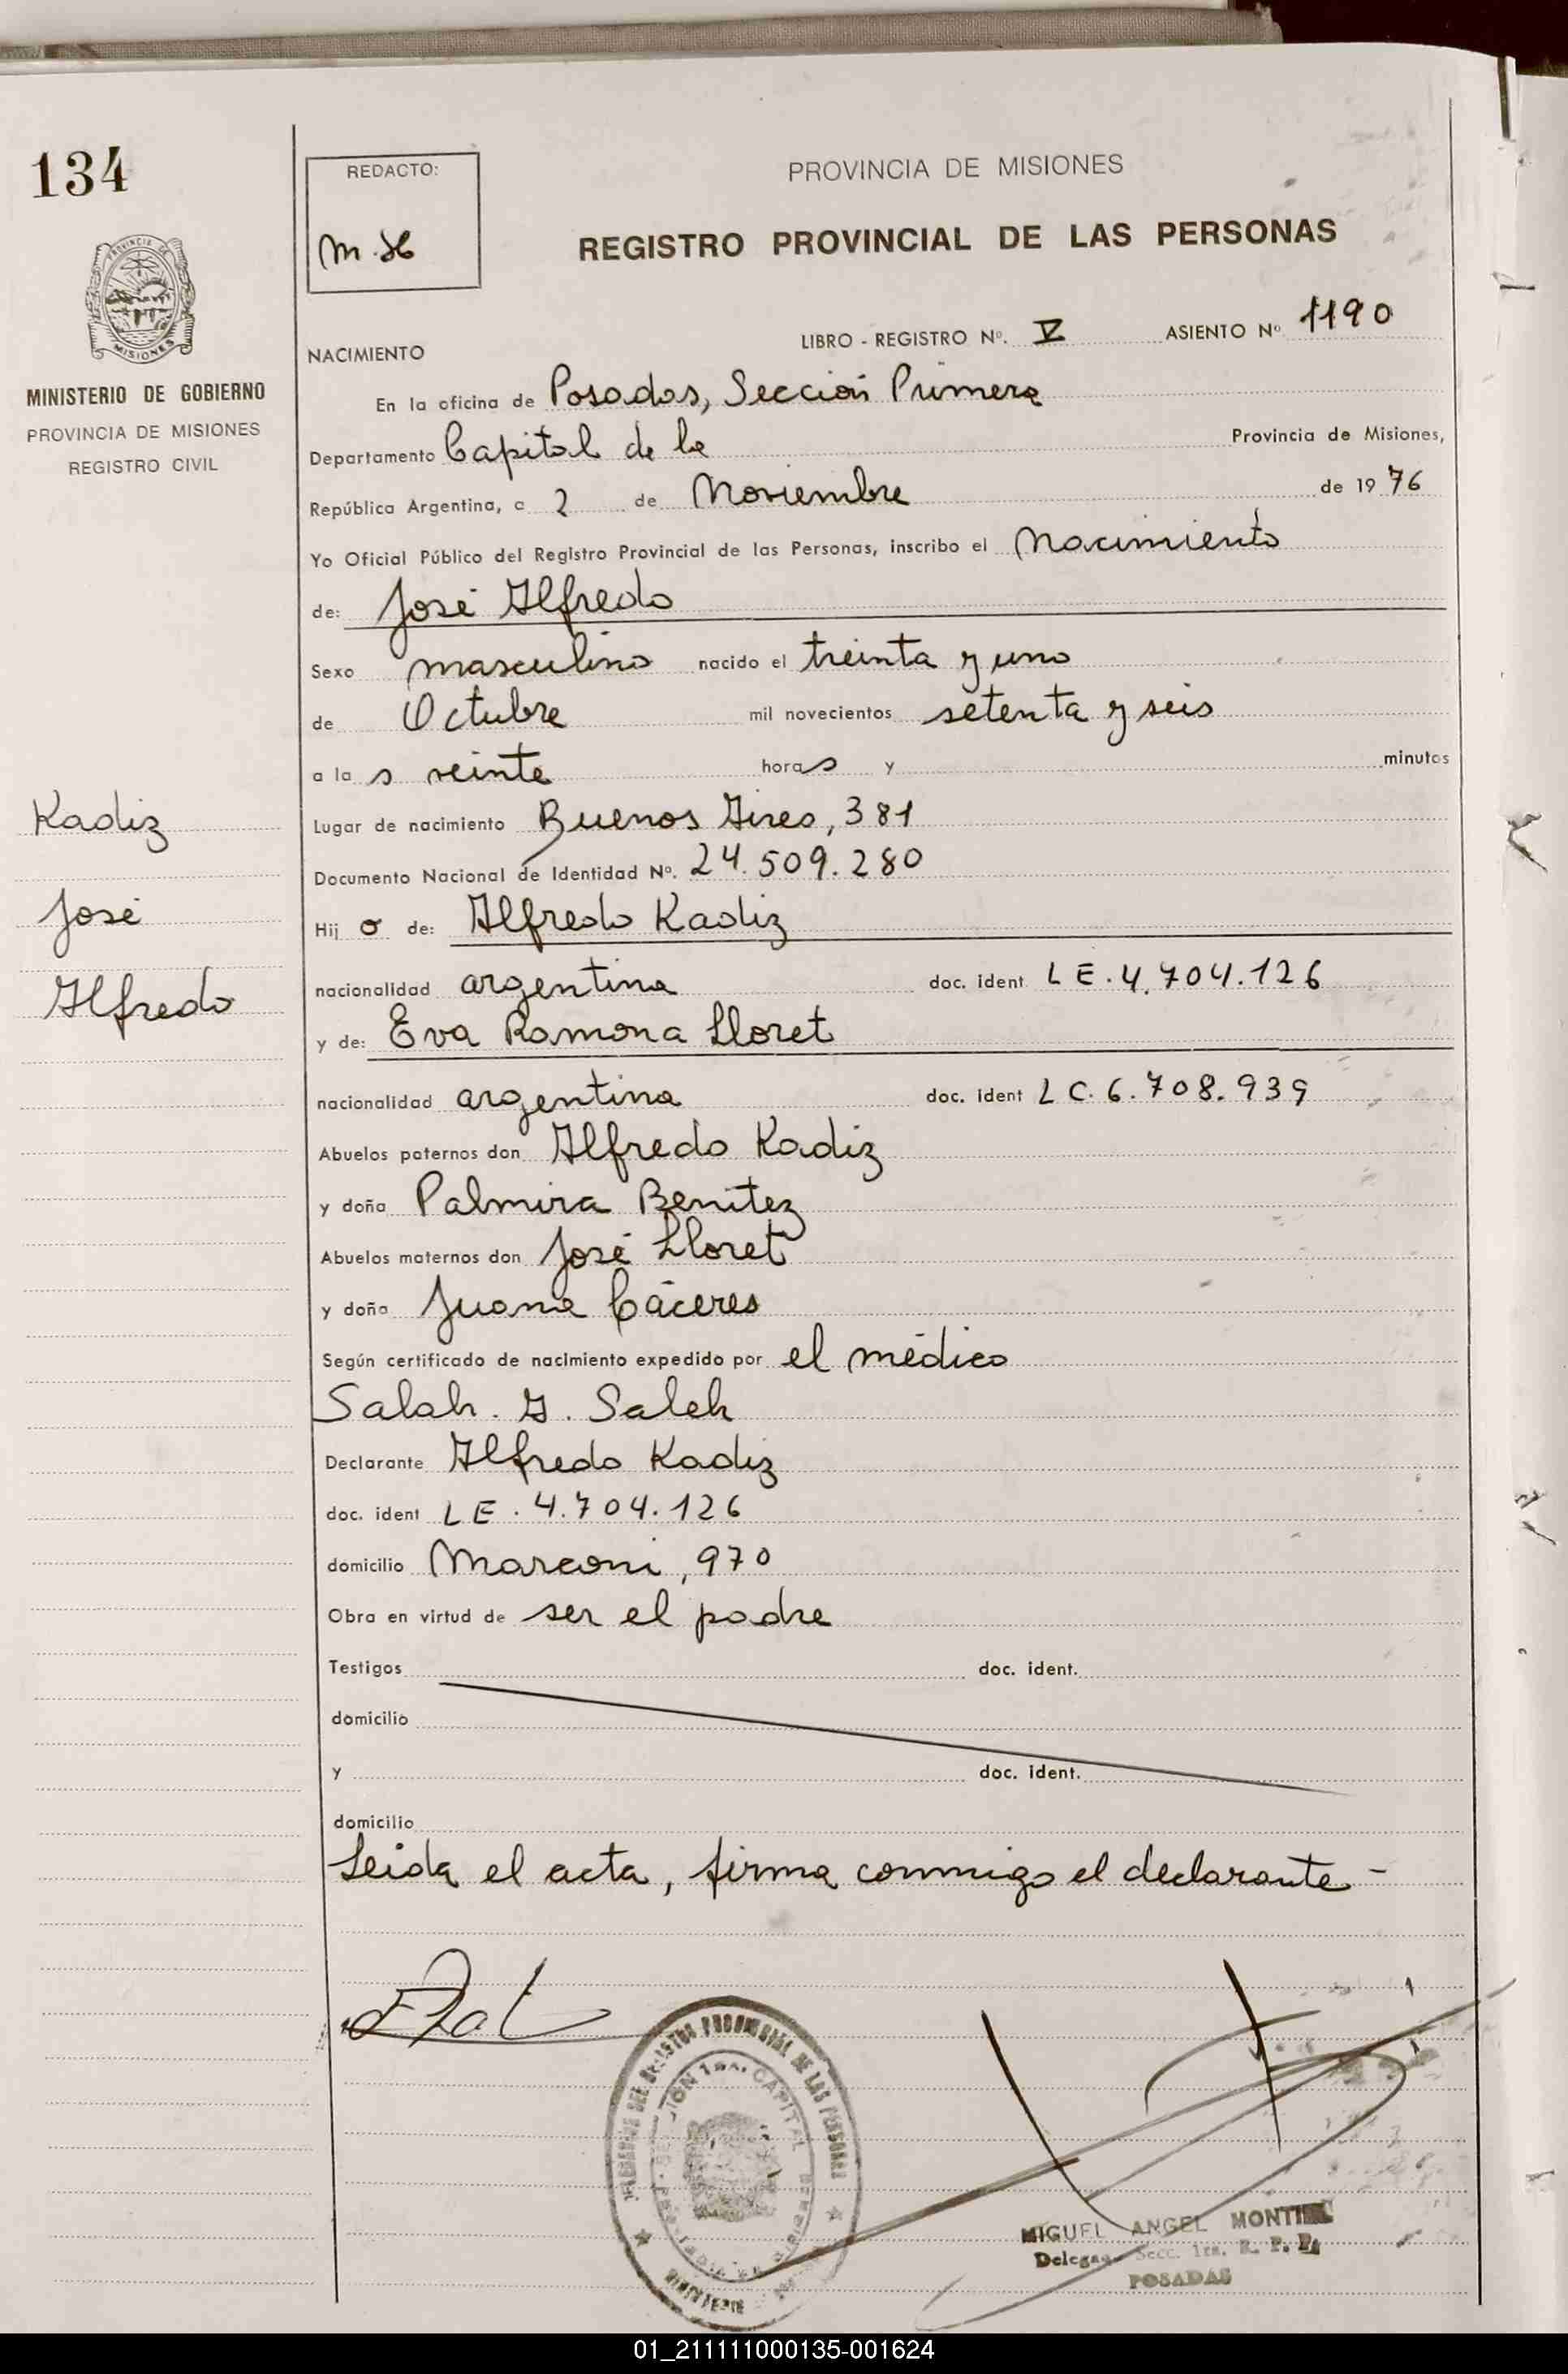 134
REDACTO:
PROVINCIA DE MISIONES
REGISTRO PROVINCIAL DE LAS PERSONAS
PROVINCIA DE MISIONES
MINISTERIO DE GOBIERNO
PROVINCIA DE MISIONES
REGISTRO CIVIL
LIBRO - REGISTRO Nº. V ASIENTO Nº 1190
NACIMIENTO
En la oficina de Posadas, Sección Primera
Departamento Capital de la Provincia de Misiones,
República Argentina, a 2 de Noviembre de 1976
Yo Oficial Público del Registro Provincial de las Personas, inscribo el Nacimiento
de: José Alfredo
Sexo masculino nacido el treinta y uno
de Octubre mil novecientos setenta y seis
a la s veinte horas y minutos
Kadiz
Lugar de nacimiento Buenos Aires, 381
Documento Nacional de Identidad Nº. 24.509.280
José
Hij o de: Alfredo Kadiz
Alfredo
nacionalidad argentina doc. ident LE. 4.704.126
y de: Eva Ramona Lloret
nacionalidad argentina doc. ident LC. 6.708.939
Abuelos paternos don Alfredo Kadiz
y doña Palmira Benitez
Abuelos maternos don José Lloret
y doña Juana Cáceres
Según certificado de nacimiento expedido por el médico
Salah. A. Saleh
Declarante Alfredo Kadiz
doc. ident LE. 4.704.126
domicilio Marconi, 970
Obra en virtud de ser el padre
Testigos doc. ident.
domicilio
y doc. ident.
domicilio
Leida el acta, firma conmigo el declarante -
MIGUEL ANGEL MONTIEL
Secc. 1ra. R. P. P.
POSADAS
01_211111000135-001624